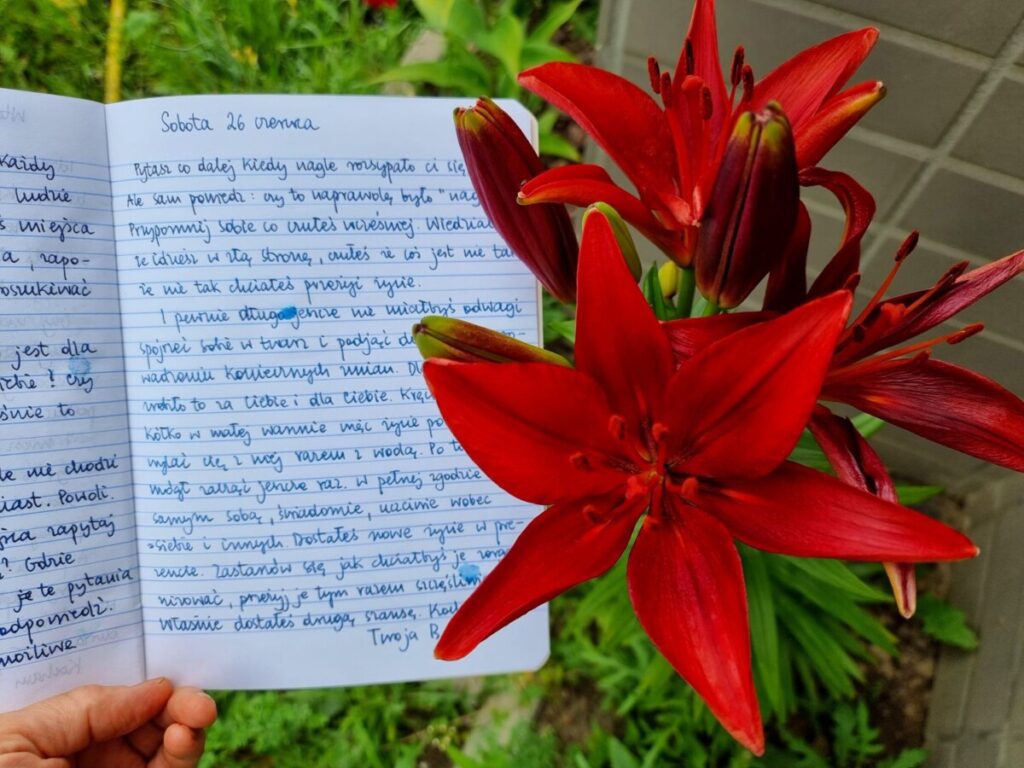 Każdy
ludzie
ś miejsca
a, zapo-
poszukiwać
jest dla
Czy
śnie to
nie chodzi
iast. Powoli.
zapytaj
? Gdzie
je te pytania
odpowiedź.
możliwe
Sobota 26 czerwca
Pytasz co dalej kiedy nagle rozsypało ci się
Ale sam powiedz: czy to naprawdę było "nag
Przypomnij sobie co czułeś wcześniej. Wiedział
że idziesz w złą stronę, czułeś że coś jest nie tak
że nie tak chciałeś przeżyć życie.
I pewnie długo jeszcze nie miałbyś odwagi
spojrzeć sobie w twarz i podjąć d
wadzeniu koniecznych zmian. Dl
zrobiło to za Ciebie i dla Ciebie. Kręc
kółko w małej wannie mąc życie po
wylać się z niej razem z wodą. Po to
mógł zacząć jeszcze raz. W pełnej zgodzie
samym sobą, świadomie, uczciwie wobec
siebie i innych. Dostałeś nowe życie w pre-
zencie. Zastanów się jak chciałbyś je zorga
nizować, przeżyj je tym razem szczęśliw
Właśnie dostałeś drugą szansę. Koch
Twoja B